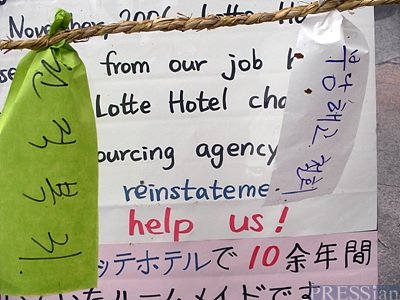 November, 2006, Lotte Ho
from our job b
Lotte Hotel cha
ourcing agency
reinstateme
help us!
ッテホテルで10余年間
いたルームメイドです
부당해고 철회
PRESSian